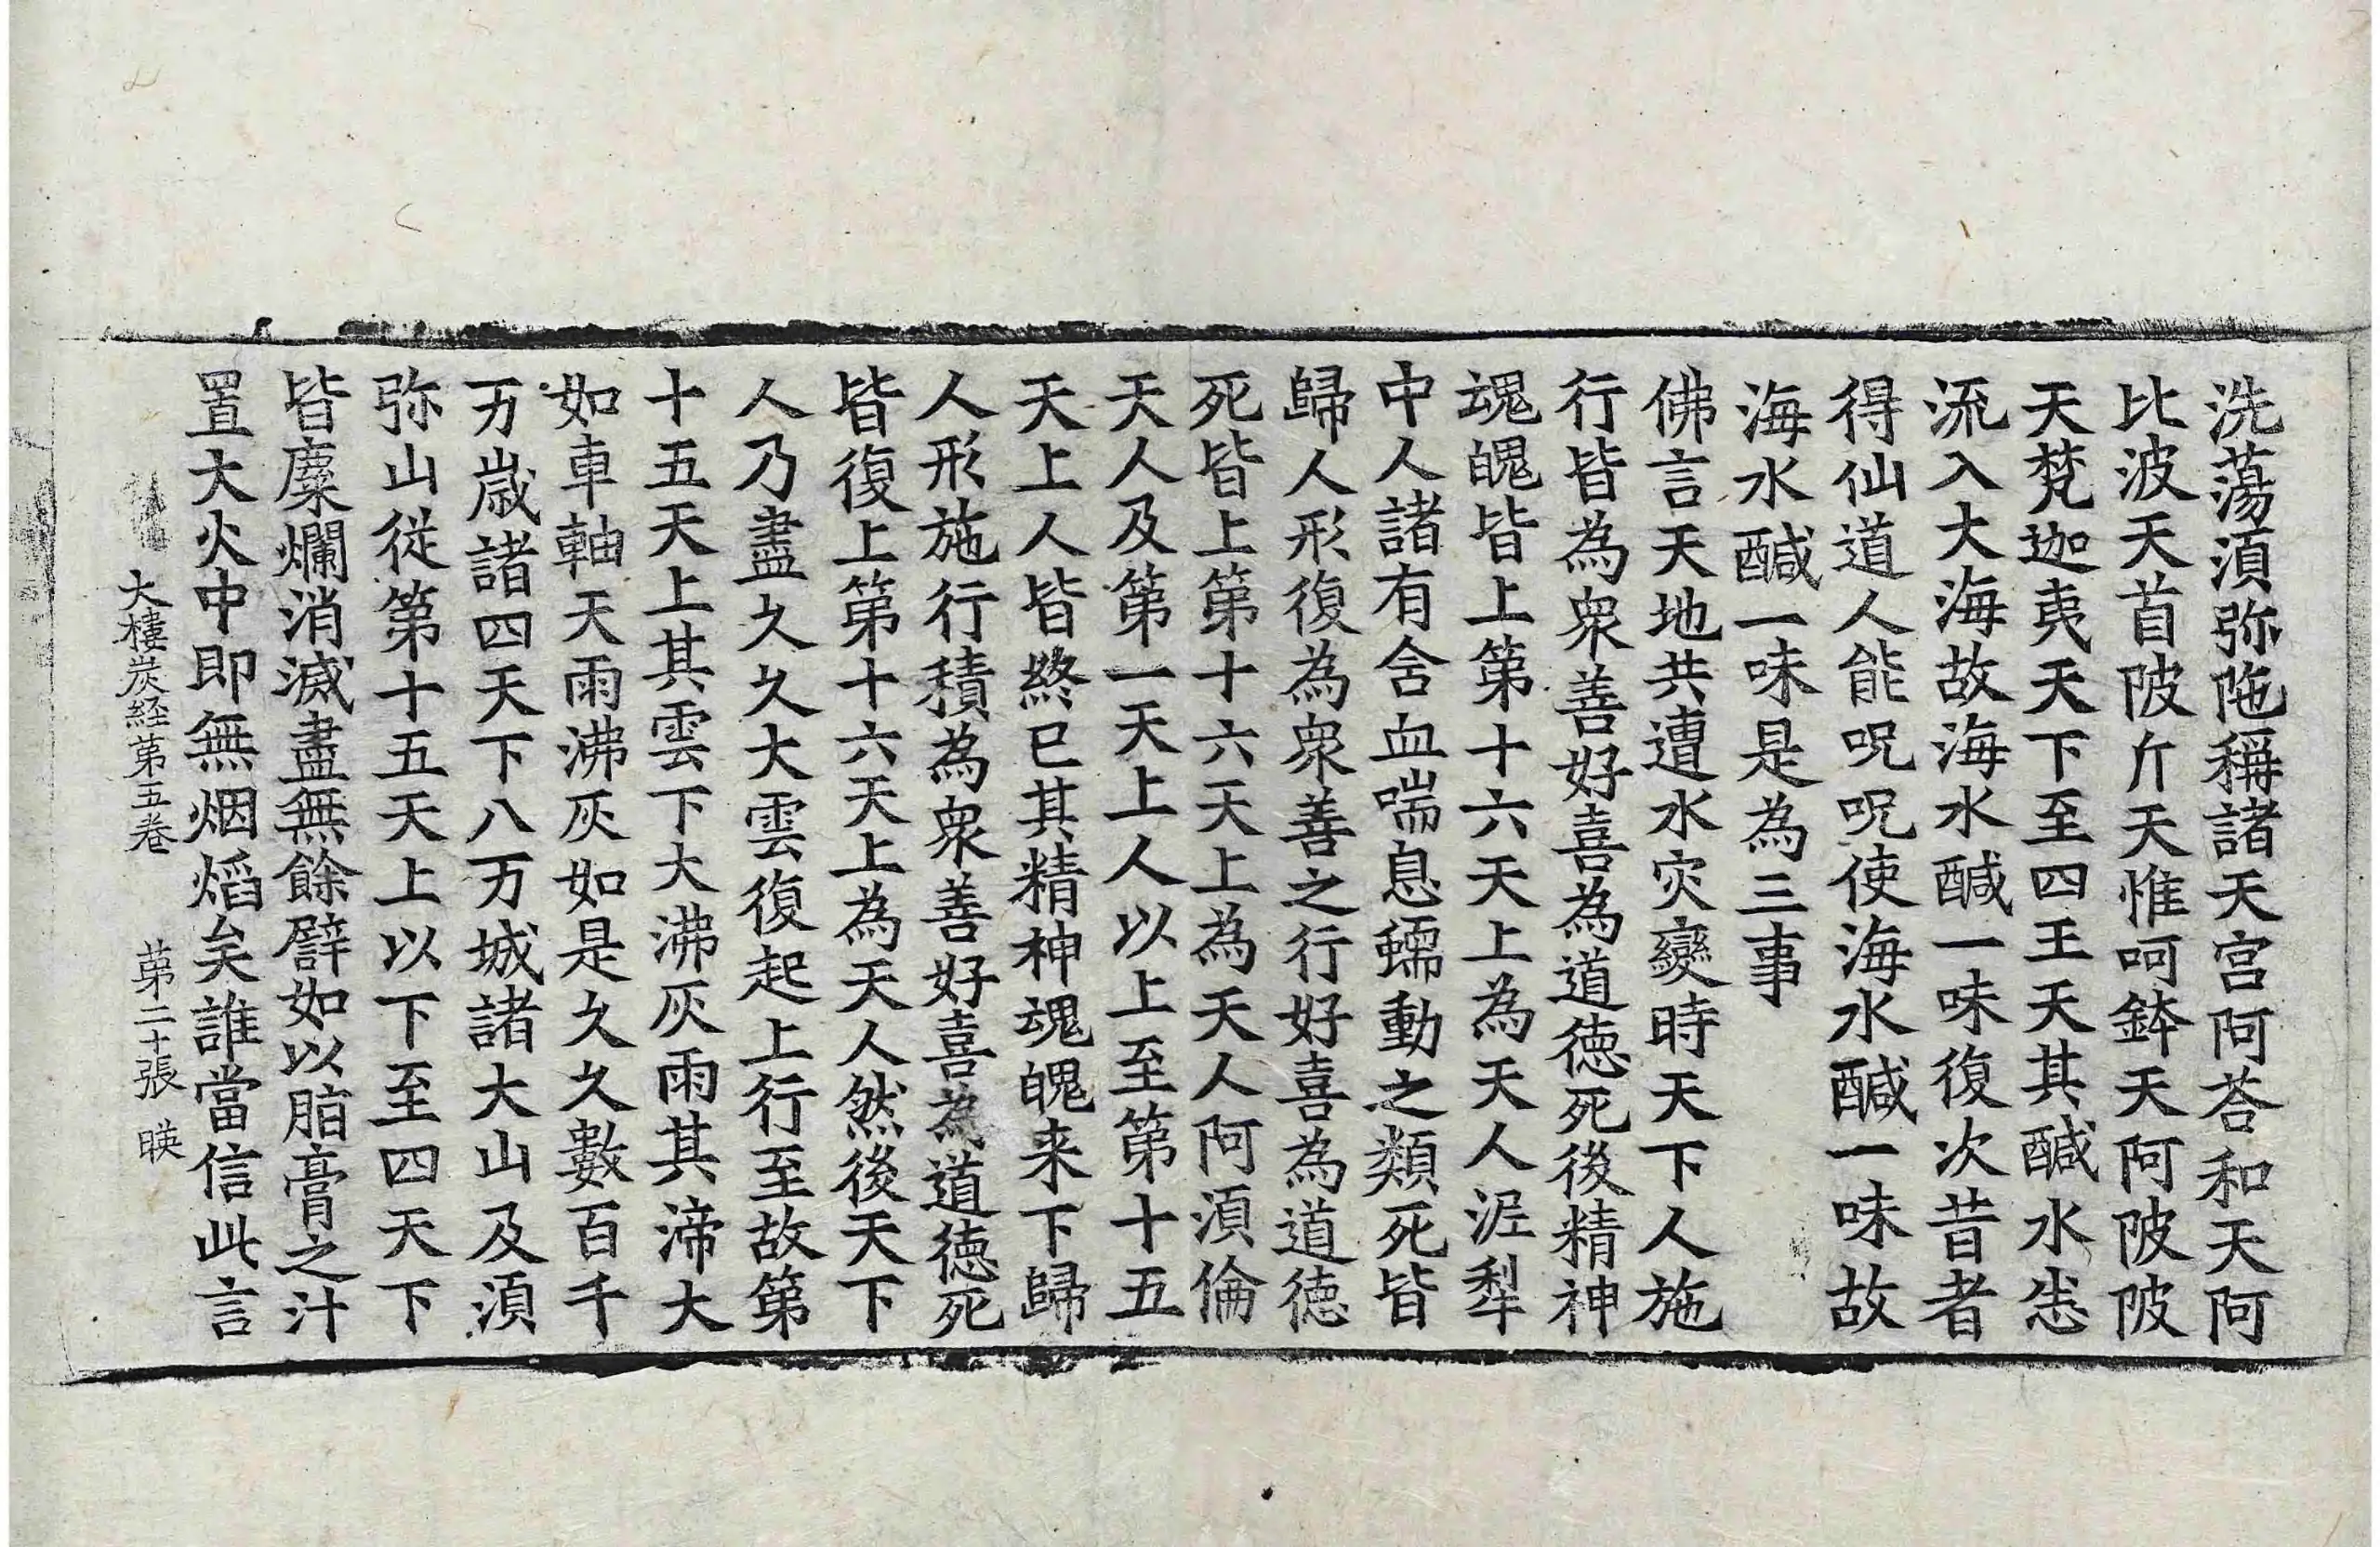 洗蕩湏弥陁稱諸天宮阿荅和天阿
比波天首陂斤天惟呵鉢天阿陂陂
天梵迦夷天下至四王天其醎水恙
流入大海故海水醎一味復次昔者
得仙道人能呪呪使海水醎一味故
海水醎一味是為三事
佛言天地共遭水灾變時天下人施
行皆為衆善好喜為道德死後精神
魂魄皆上第十六天上為天人泥犁
中人諸有含血喘息蠕動之類死皆
歸人形復為衆善之行好喜為道徳
死皆上第十六天上為天人阿湏倫
天人及第一天上人以上至第十五
天上人皆終已其精神魂魄来下歸
人形施行積為衆善好喜為道德死
皆復上第十六天上為天人然後天下
人乃盡久久大雲復起上行至故第
十五天上其雲下大沸灰雨其渧大
如車軸天雨沸灰如是久久數百千
万歳諸四天下八万城諸大山及湏
弥山從第十五天上以下至四天下
皆麋爛消滅盡無餘譬如以脂膏之汁
置大火中即無烟熖矣誰當信此言
大樓炭経第五卷 第二十張 暎